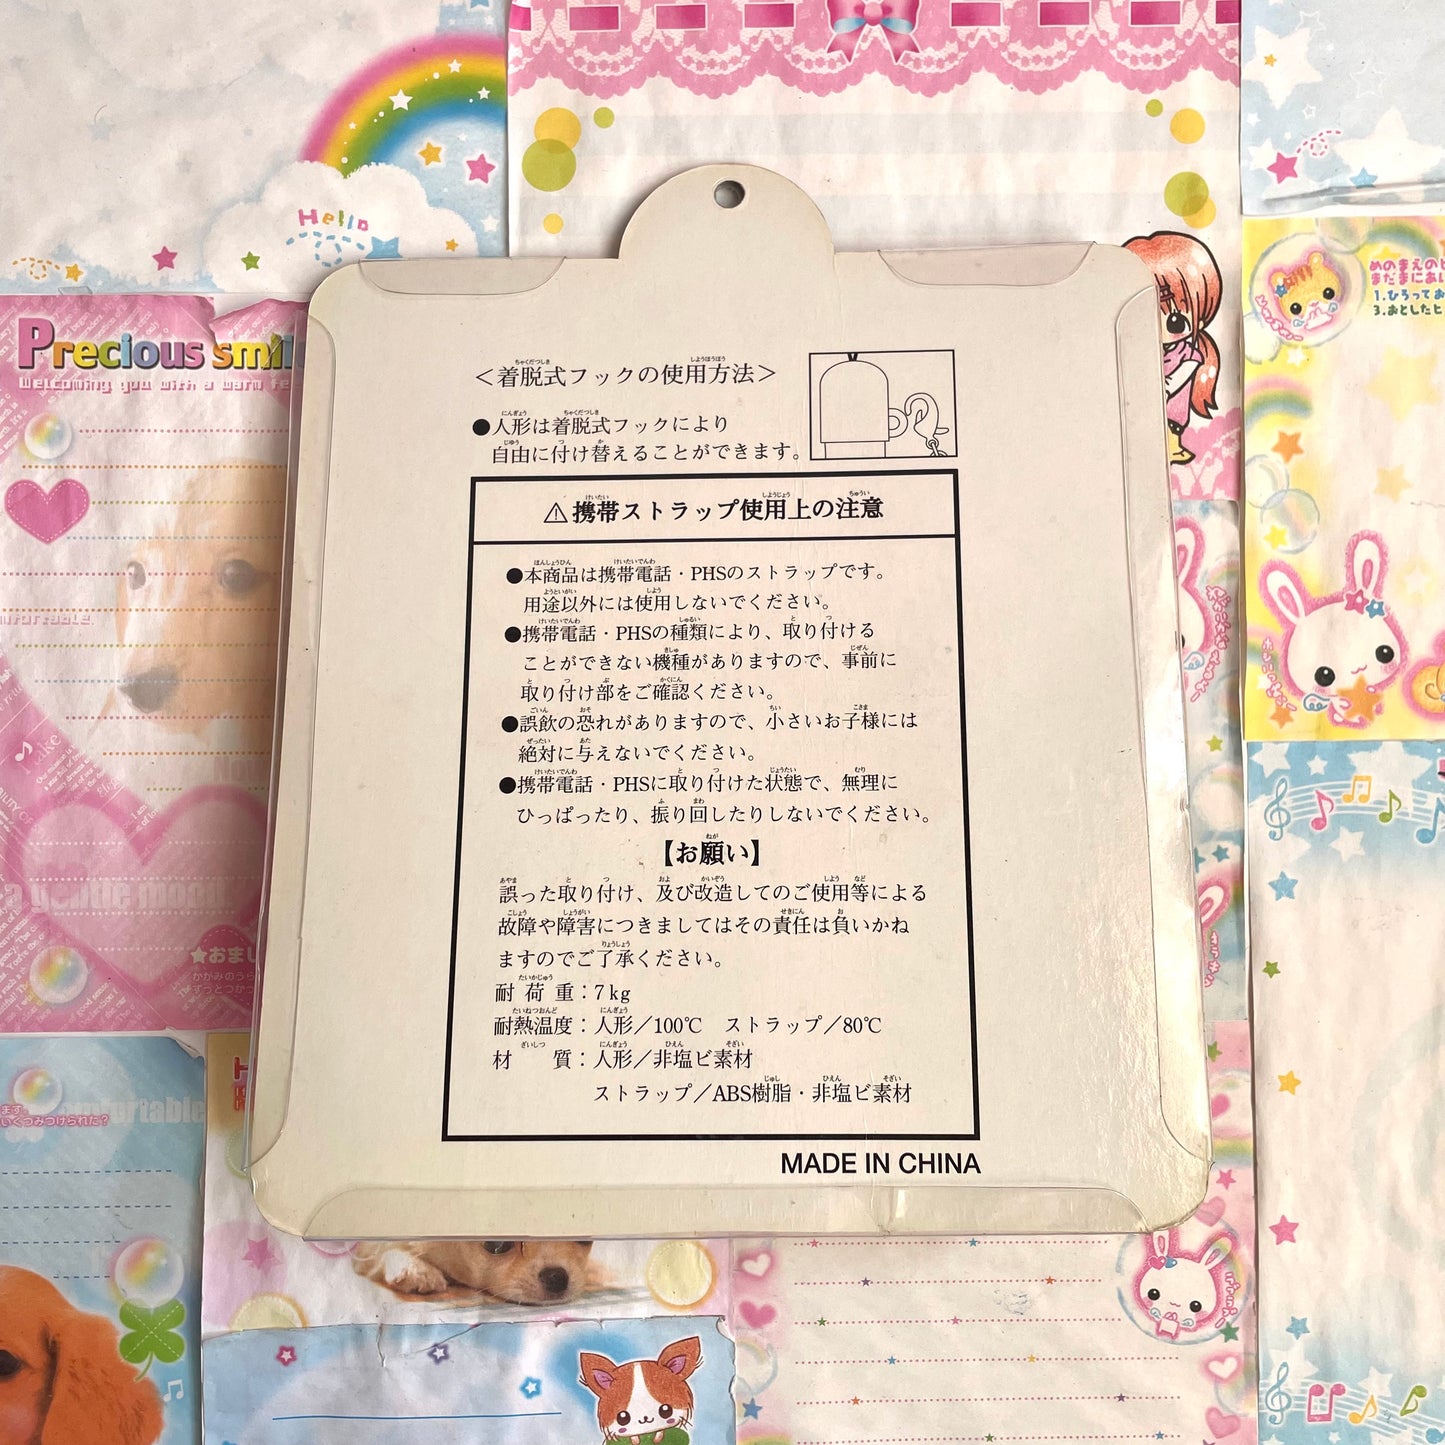 Hello
Precious smile
Welcoming you with a warm
めのまえのヒ
まだまにあい
1.ひろってお
3.おとしたヒ
＜着脱式フックの使用方法＞
●人形は着脱式フックにより
自由に付け替えることができます。
⚠携帯ストラップ使用上の注意
●本商品は携帯電話・PHSのストラップです。
用途以外には使用しないでください。
●携帯電話・PHSの種類により、取り付ける
ことができない機種がありますので、事前に
取り付け部をご確認ください。
●誤飲の恐れがありますので、小さいお子様には
絶対に与えないでください。
●携帯電話・PHSに取り付けた状態で、無理に
ひっぱったり、振り回したりしないでください。
【お願い】
誤った取り付け、及び改造してのご使用等による
故障や障害につきましてはその責任は負いかね
ますのでご了承ください。
耐荷重：7kg
耐熱温度：人形／100℃　ストラップ／80℃
材　質：人形／非塩ビ素材
ストラップ／ABS樹脂・非塩ビ素材
MADE IN CHINA
a gentle mood
★おまじ
かがみのうら
ずっとつかっ
ます
いくつみつけられた？